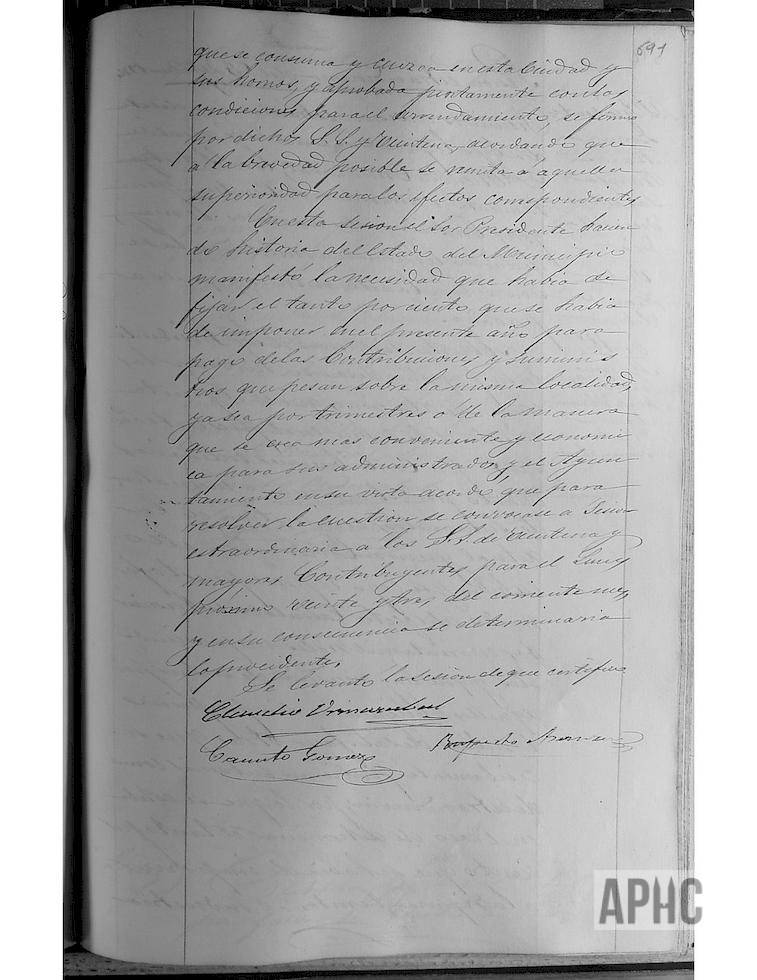 691
que se consuma y cueza en esta Ciudad y
sus hornos, y aprobada juntamente con las
condiciones para el arrendamiento, se firmó
por dichos S.S. y Veintena, acordando que
a la brevedad posible se remita á aquella
superioridad para los efectos correspondientes
En esta sesion el Sor Presidente hacien
do historia del Estado del Municipio
manifestó la necesidad que habia de
fijar el tanto por ciento que se habia
de imponer en el presente año para
pago de las Contribuciones y suminis
tros que pesan sobre la misma localidad,
ya sea por trimestres ó de la manera
que se crea mas conveniente y economi
ca para su administrador, y el Ayun
tamiento en su vista acordó, que para
resolver la cuestion se convocase a Sesion
estraordinaria a los S.S. de Veintena y
mayores Contribuyentes para el Lunes
próximo veinte y tres del corriente mes,
y en su consecuencia se determinaria
lo procidente.
Se levantó la sesion de que certifico
Claudio
Canuto Gomez